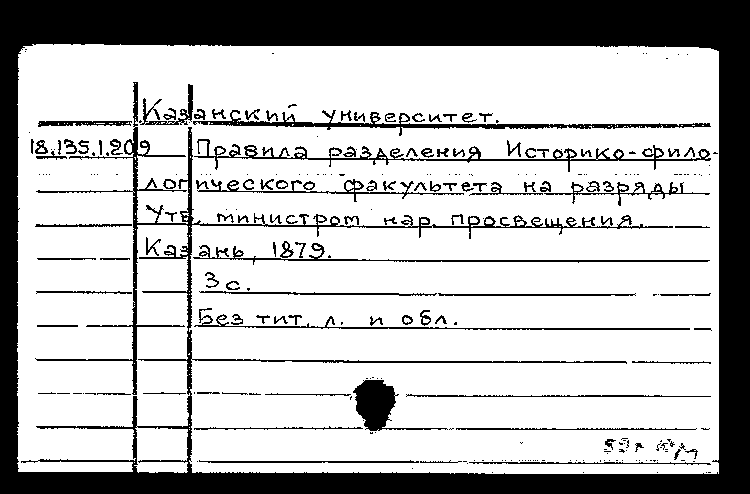 Казанский университет.
18.135.1.209 Правила разделения Историко-фило-
логического факультета на разряды
Утв. министром нар. просвещения.
Казань, 1879.
3 с.
Без тит. л. и обл.